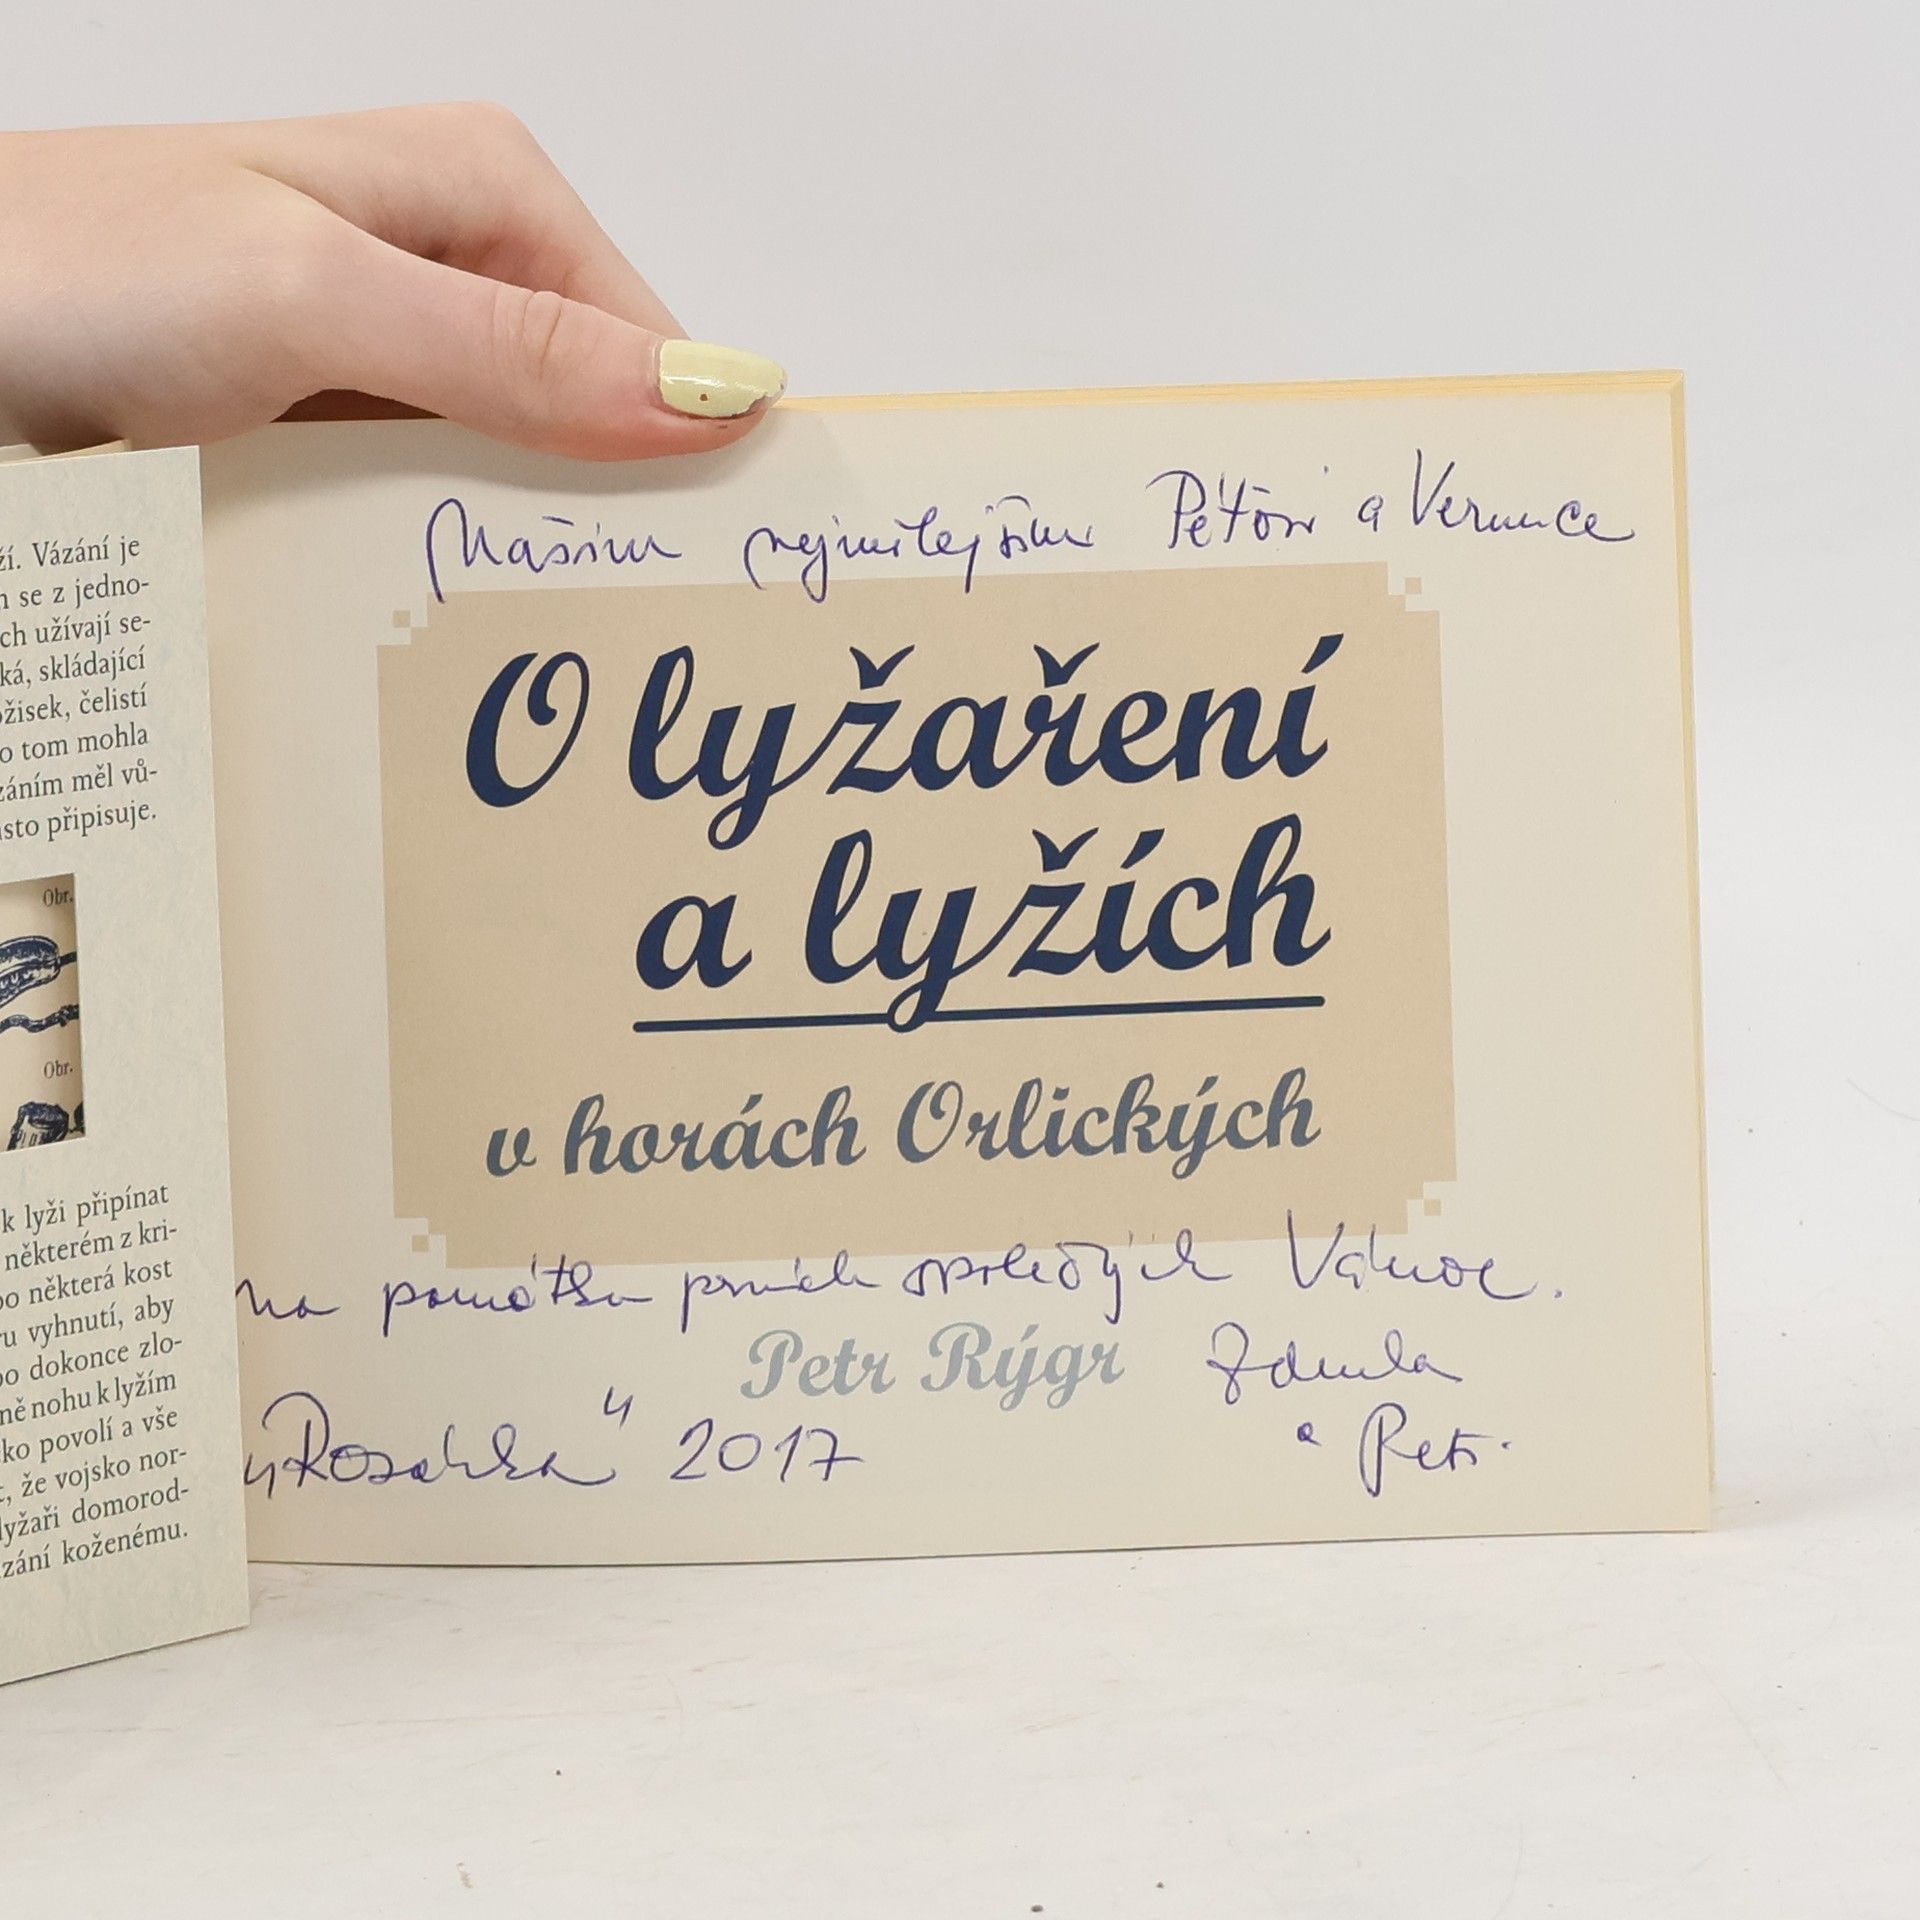 ží. Vázání je
se z jedno-
ch užívají se-
ká, skládající
ožisek, čelistí
o tom mohla
záním měl vů-
sto připisuje.
Obr.
Obr.
k lyži připínat
některém z kri-
bo některá kost
ru vyhnutí, aby
bo dokonce zlo-
ně nohu k lyžím
ko povolí a vše
, že vojsko nor-
lyžaři domorod-
zání koženému.
Našim nejmilejším Péťovi a Verunce
O lyžaření
a lyžích
v horách Orlických
na památku prvních společných Vánoc.
Petr Rýgr
Zdenka
„Rosárka" 2017
a Petr.